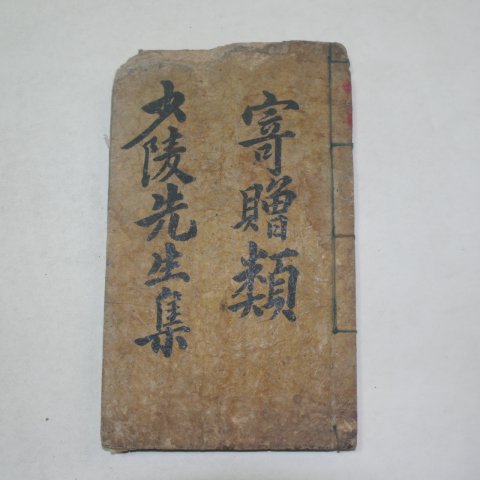 寄贈類
少陵先生集